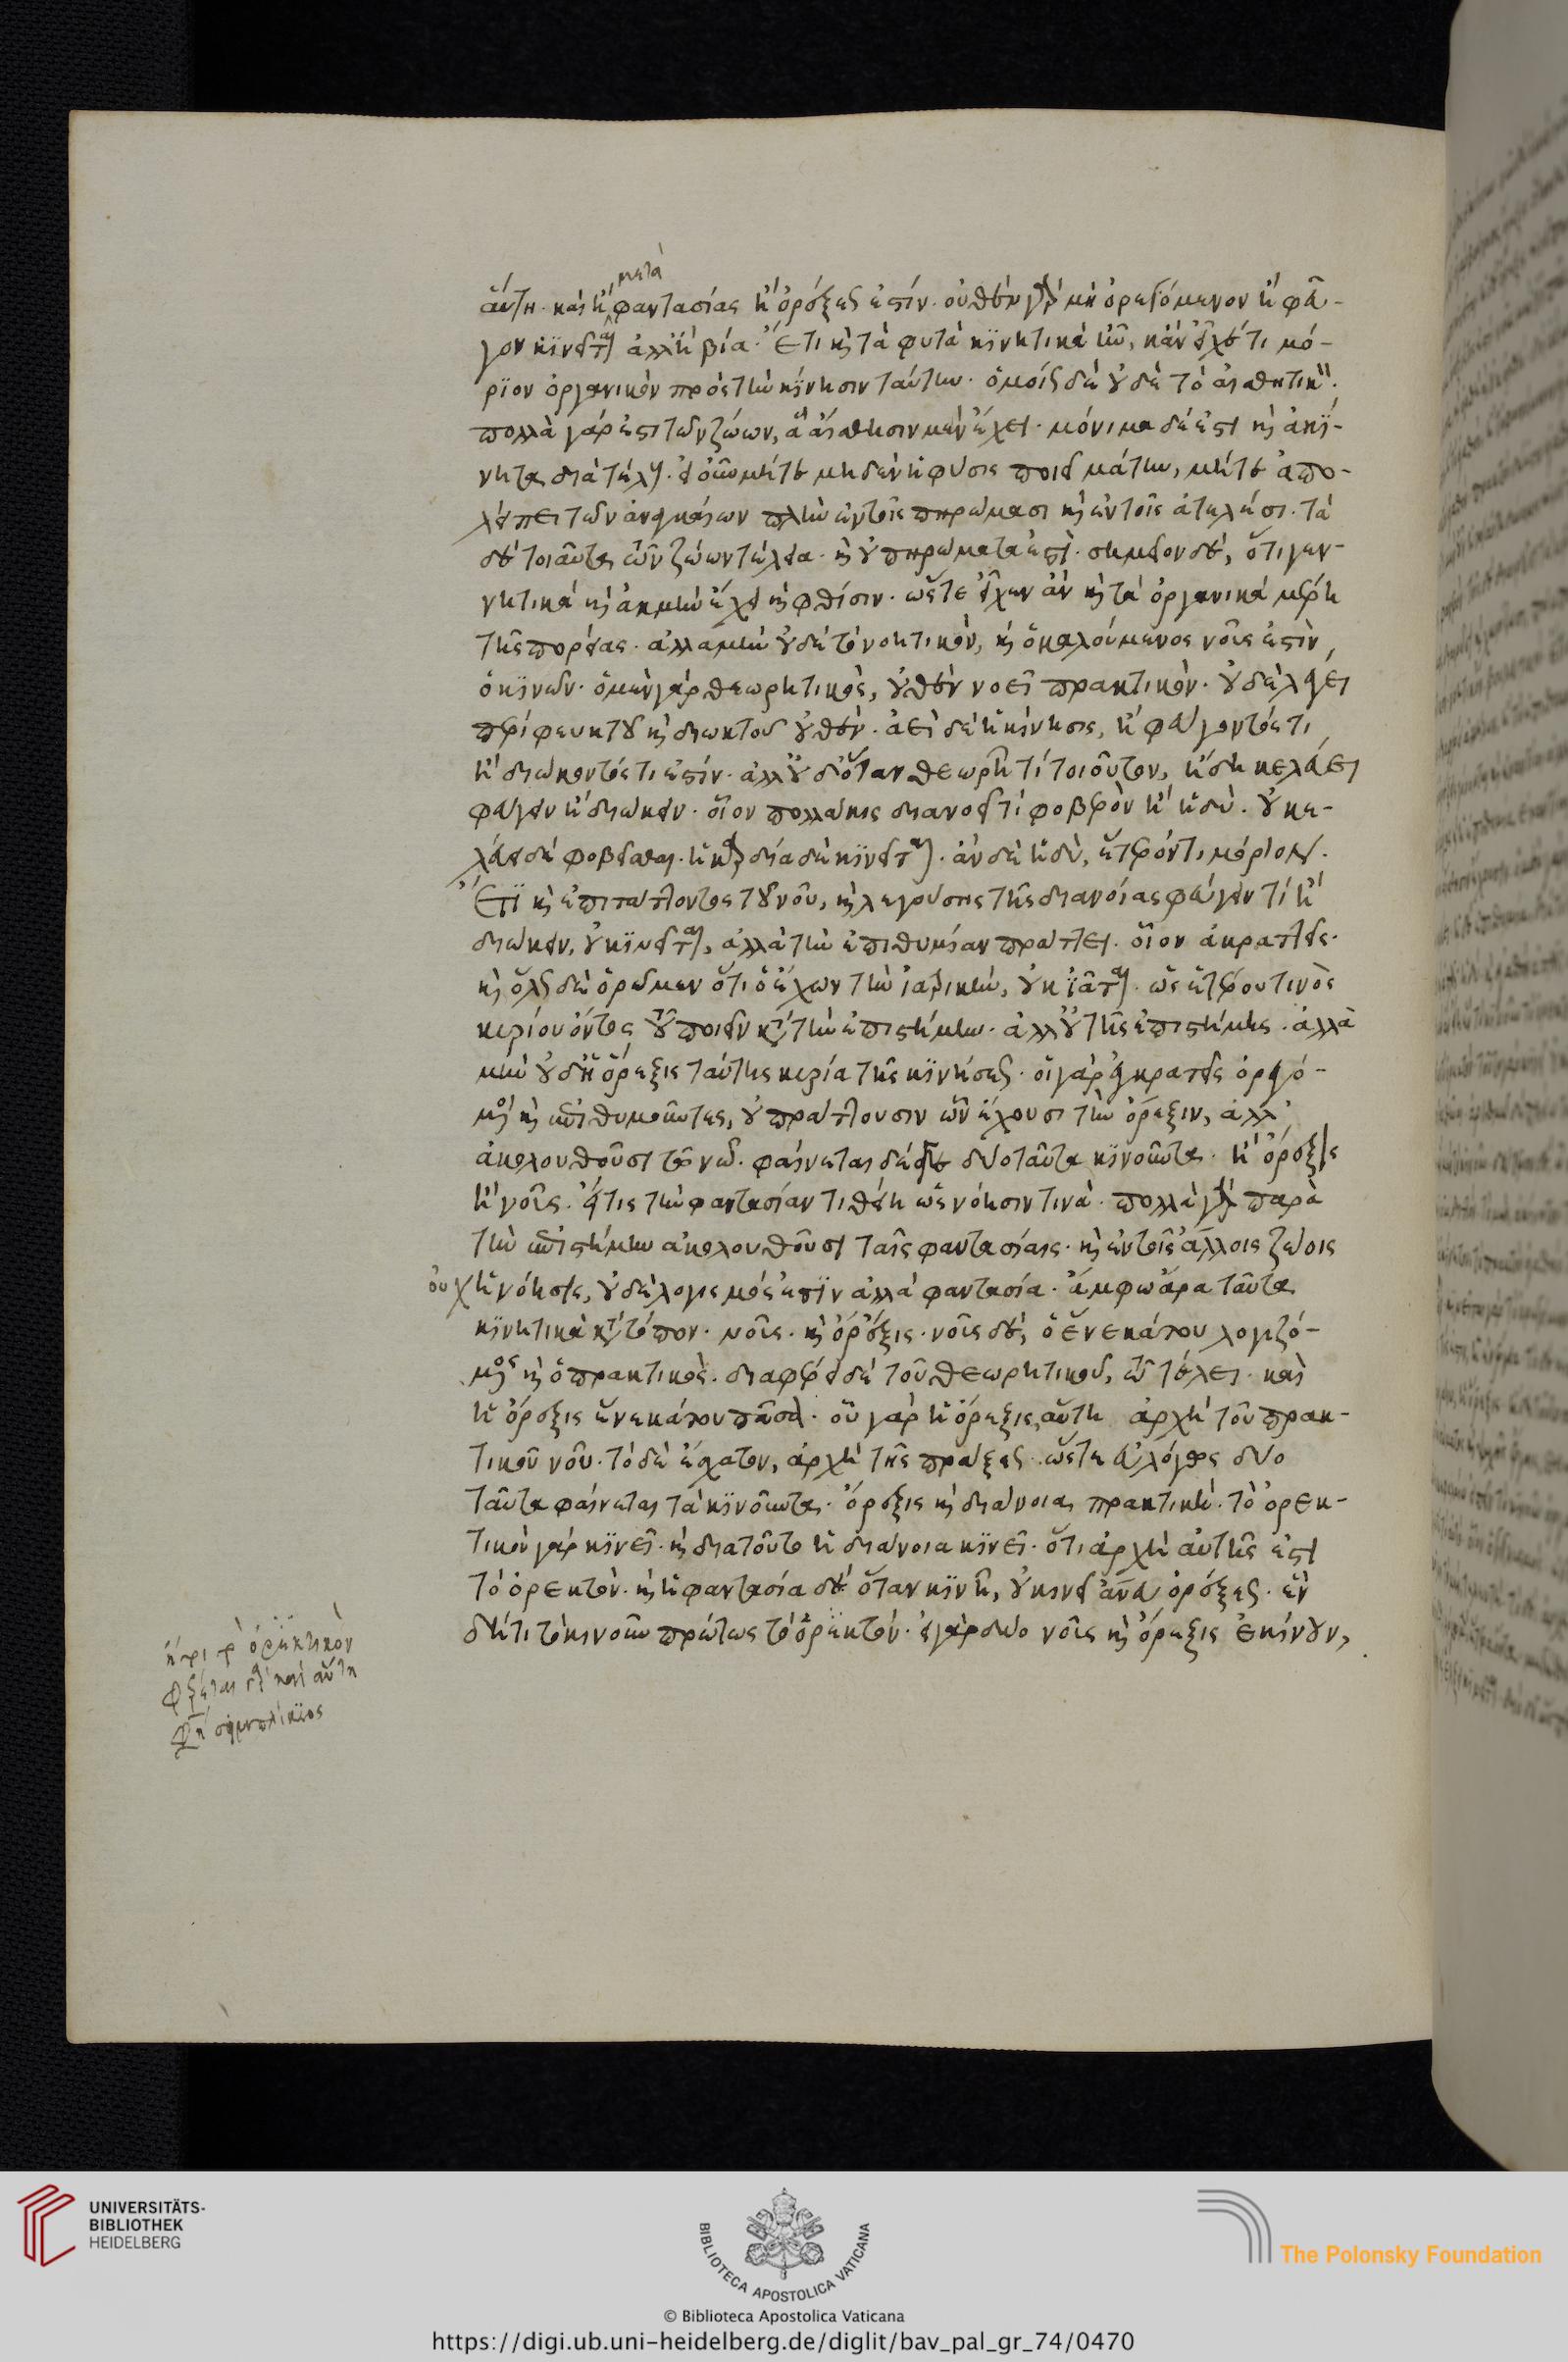 μετὰ
αὕτη. καὶ ἢ φαντασίας ἢ ὀρέξεώς ἐστίν. οὐθὲν γὰρ μὴ ὀρεγόμενον ἢ φεῦ-
γον κϊνεῖται ἀλλ' ἢ βία. Ἔτι καὶ τὰ φυτὰ κϊνητικὰ ἦν, κἂν εἶχέ τι μό-
ρϊον ὀργανικὸν πρὸς τὴν κίνησιν ταύτην. ὁμοίως δὲ οὐδὲ τὸ αἰσθητικὸν.
πολλὰ γάρ ἐστι τῶν ζώων, ἃ αἴσθησιν μὲν ἔχει. μόνιμα δέ ἐστι καὶ ἀκί-
νητα διὰ τέλους. εἰ οὖν μήτε μηδὲν ἡ φύσις ποιεῖ μάτην, μήτε ἀπο-
λείπει τῶν ἀναγκαίων πλὴν ἐν τοῖς πηρώμασι καὶ ἐν τοῖς ἀτελέσι. τὰ
δὲ τοιαῦτα τῶν ζώων τέλεια. καὶ οὐ πηρώματά ἐστὶ. σημεῖον δέ, ὅτι γεν-
νητικά καὶ ἀκμὴν ἔχει καὶ φθίσιν. ὥστε εἶχεν ἂν καὶ τὰ ὀργανικὰ μέρη
τῆς πορείας. ἀλλὰ μὴν οὐδὲ τὸ νοητικὸν, καὶ ὁ καλούμενος νοῦς ἐστὶν,
ὁ κϊνῶν. ὁ μὲν γὰρ θεωρητικὸς, οὐθὲν νοεῖ πρακτικὸν. οὐδὲ λέγει
περὶ φευκτοῦ καὶ διωκτοῦ οὐθέν. ἀεὶ δὲ ἡ κίνησις, ἢ φεύγοντός τι
ἢ διώκοντός τι ἐστίν. ἀλλ' οὐδ' ὅταν θεωρῇ τί τοιοῦτον, ἤδη κελεύει
φεύγειν ἢ διώκειν. οἷον πολλάκις διανοεῖ τί φοβερὸν ἢ ἡδὺ. οὐ κε-
λεύει δὲ φοβεῖσθαι. ἡ καρδία δὲ κϊνεῖται. ἂν δὲ ἡδὺ, ἕτερόν τι μόριον.
Ἔτϊ καὶ ἐπιτάττοντος τοῦ νοῦ, καὶ λεγούσης τῆς διανοίας φεύγειν τί ἢ
διώκειν, οὐ κϊνεῖται, ἀλλὰ τὴν ἐπιθυμίαν πράττει. οἷον ἀκρατεῖς.
καὶ ὅλως δὲ ὁρῶμεν ὅτι ὁ ἔχων τὴν ἰατρικὴν, οὐκ ἰᾶται. ὡς ἑτέρου τινὸς
κυρίου ὄντος τοῦ ποιεῖν κατὰ τὴν ἐπιστήμην. ἀλλ' οὐ τῆς ἐπιστήμης. ἀλλὰ
μὴν οὐδ' ἡ ὄρεξις ταύτης κυρία τῆς κϊνήσεως. οἱ γὰρ ἐγκρατεῖς ὀρεγό-
μενοι καὶ ἐπιθυμοῦντες, οὐ πράττουσιν ὧν ἔχουσι τὴν ὄρεξιν, ἀλλ'
ἀκολουθοῦσι τῷ νῷ. φαίνεται δέ γε δύο ταῦτα κϊνοῦντα. ἢ ὄρεξις
ἢ νοῦς. εἴ τις τὴν φαντασίαν τιθείη ὡς νόησιν τινὰ. πολλὰ γὰρ παρὰ
τὴν ἐπιστήμην ἀκολουθοῦσι ταῖς φαντασίαις. καὶ ἐν τοῖς ἄλλοις ζώοις
οὐχ ἡ νόησις, οὐδὲ λογισμός ἐστϊν ἀλλὰ φαντασία. ἄμφω ἄρα ταῦτα
κϊνητικὰ κατὰ τόπον. νοῦς. καὶ ὄρεξις. νοῦς δὲ, ὁ ἕνεκά του λογιζό-
μενος καὶ ὁ πρακτικὸς. διαφέρει δὲ τοῦ θεωρητικοῦ, τῷ τέλει. καὶ
ἡ ὄρεξις ἕνεκά του πᾶσα. οὗ γὰρ ἡ ὄρεξις, αὕτη ἀρχὴ τοῦ πρακ-
τικοῦ νοῦ. τὸ δὲ ἔσχατον, ἀρχὴ τῆς πράξεως. ὥστε εὐλόγως δύο
ταῦτα φαίνεται τὰ κϊνοῦντα. ὄρεξις καὶ διάνοια πρακτική. τὸ ὀρεκ-
τικὸν γὰρ κϊνεῖ. καὶ διὰ τοῦτο ἡ διάνοια κϊνεῖ. ὅτι ἀρχὴ αὐτῆς ἐστι
τὸ ὀρεκτόν. καὶ ἡ φαντασία δὲ ὅταν κϊνῇ, οὐ κινεῖ ἄνευ ὀρέξεως. ἓν
δή τι τὸ κινοῦν πρώτως τὸ ὀρεκτόν. εἰ γὰρ δύο νοῦς καὶ ὄρεξις ἐκίνουν,
ὀρεκτικὸν
καὶ αὕτη
σιμπλίκιος
UNIVERSITÄTS-
BIBLIOTHEK
HEIDELBERG
BIBLIOTECA APOSTOLICA VATICANA
The Polonsky Foundation
© Biblioteca Apostolica Vaticana
https://digi.ub.uni-heidelberg.de/diglit/bav_pal_gr_74/0470